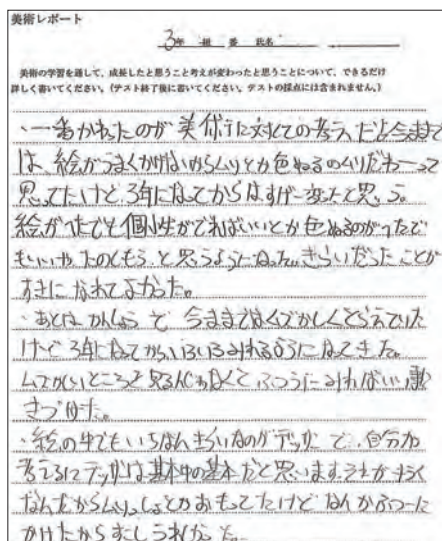 美術レポート
3年 組 番 氏名
美術の学習を通して、成長したと思うこと考えが変わったと思うことについて、できるだけ
詳しく書いてください。(テスト終了後に書いてください。テストの採点には含まれません。)
・一番かわったのが美術に対しての考え、だと今まで
は、絵がうまくかけないからムリとか色ぬるのムリだわーって
思ってたけど、3年になってからはすげー変たと思う。
絵がヘたでも個性がでればいいとか色ぬるのがヘたで
もいいや、たのしもうと思うようになった。きらいだったことが
すきになれてよかった。
・あとは、かんしょうで今まではムズかしくとらえていた
けど3年になってから、いろいろみれるようになってきた。
ムズかしいところを見るんじゃなくてふつうにみればいい
きづけた。
・絵の中でもいちばんきらいなのがデッサンで、自分が
考えるにデッサンは基本中の基本だと思います。それが
なんだからムリっしょとかおもってたけどなんかふつーに
かけたからすこしうれしかった。